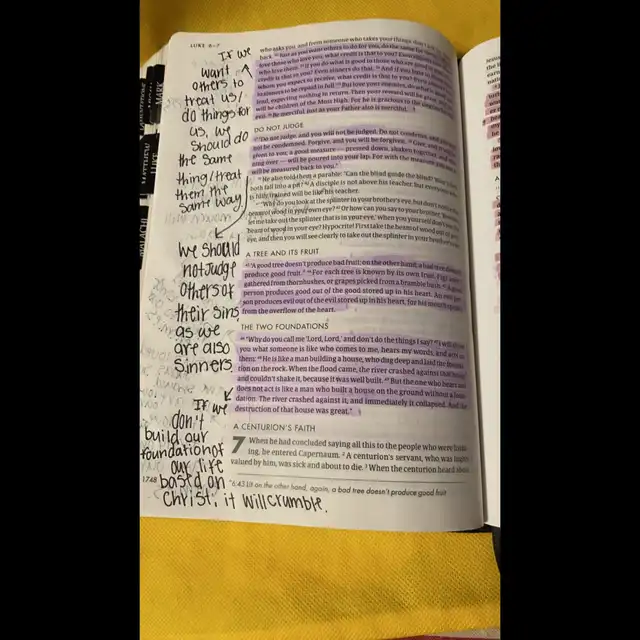 LUKE 6–7
who asks you, and from someone who takes your things, don't
back. Just as you want others to do for you, do the same for
love those who love you, what credit is that to you? Even
who love them. If you do what is good to those who
credit is that to you? Even sinners do that. And if you lend to
whom you expect to receive, what credit is that to you? Even
to sinners to be repaid in full. But love your enemies, do what is
lend, expecting nothing in return. Then your reward will be
will be children of the Most High. For he is gracious to the
evil. Be merciful, just as your Father also is merciful.
DO NOT JUDGE
"Do not judge, and you will not be judged. Do not condemn, and
not be condemned. Forgive, and you will be forgiven. Give, and
given to you; a good measure — pressed down, shaken together, and
ning over — will be poured into your lap. For with the measure
will be measured back to you."
He also told them a parable: "Can the blind guide the blind?
both fall into a pit? A disciple is not above his teacher, but everyone
is fully trained will be like his teacher.
"Why do you look at the splinter in your brother's eye, but don't
beam of wood in your own eye? Or how can you say to your brother,
let me take out the splinter that is in your eye,' when you yourself don't
beam of wood in your eye? Hypocrite! First take the beam of wood out of
eye, and then you will see clearly to take out the splinter in your brother's
A TREE AND ITS FRUIT
"A good tree doesn't produce bad fruit; on the other hand, a bad tree
produce good fruit. For each tree is known by its own fruit. Figs
gathered from thornbushes, or grapes picked from a bramble bush.
person produces good out of the good stored up in his heart. An evil
son produces evil out of the evil stored up in his heart, for his mouth
from the overflow of the heart.
THE TWO FOUNDATIONS
"Why do you call me 'Lord, Lord,' and don't do the things I say?
you what someone is like who comes to me, hears my words, and acts on
them: He is like a man building a house, who dug deep and laid the
tion on the rock. When the flood came, the river crashed against that
and couldn't shake it, because it was well built. But the one who hears
does not act is like a man who built a house on the ground without a
dation. The river crashed against it, and immediately it collapsed. And the
destruction of that house was great."
A CENTURION'S FAITH
7 When he had concluded saying all this to the people who were
ing, he entered Capernaum. 2 A centurion's servant, who was highly
valued by him, was sick and about to die. 3 When the centurion heard about
1748
6:43 Lit on the other hand, again, a bad tree doesn't produce good fruit
If we
want
others to
treat us/
do things for
us, we
should do
the same
thing/treat
them the
same way
we should
not judge
others of
their sins
as we
are also
sinners
If we
don't
build our
foundation of
our life
based on
Christ, it will crumble.
MARK
MATTHEW
MALACHI